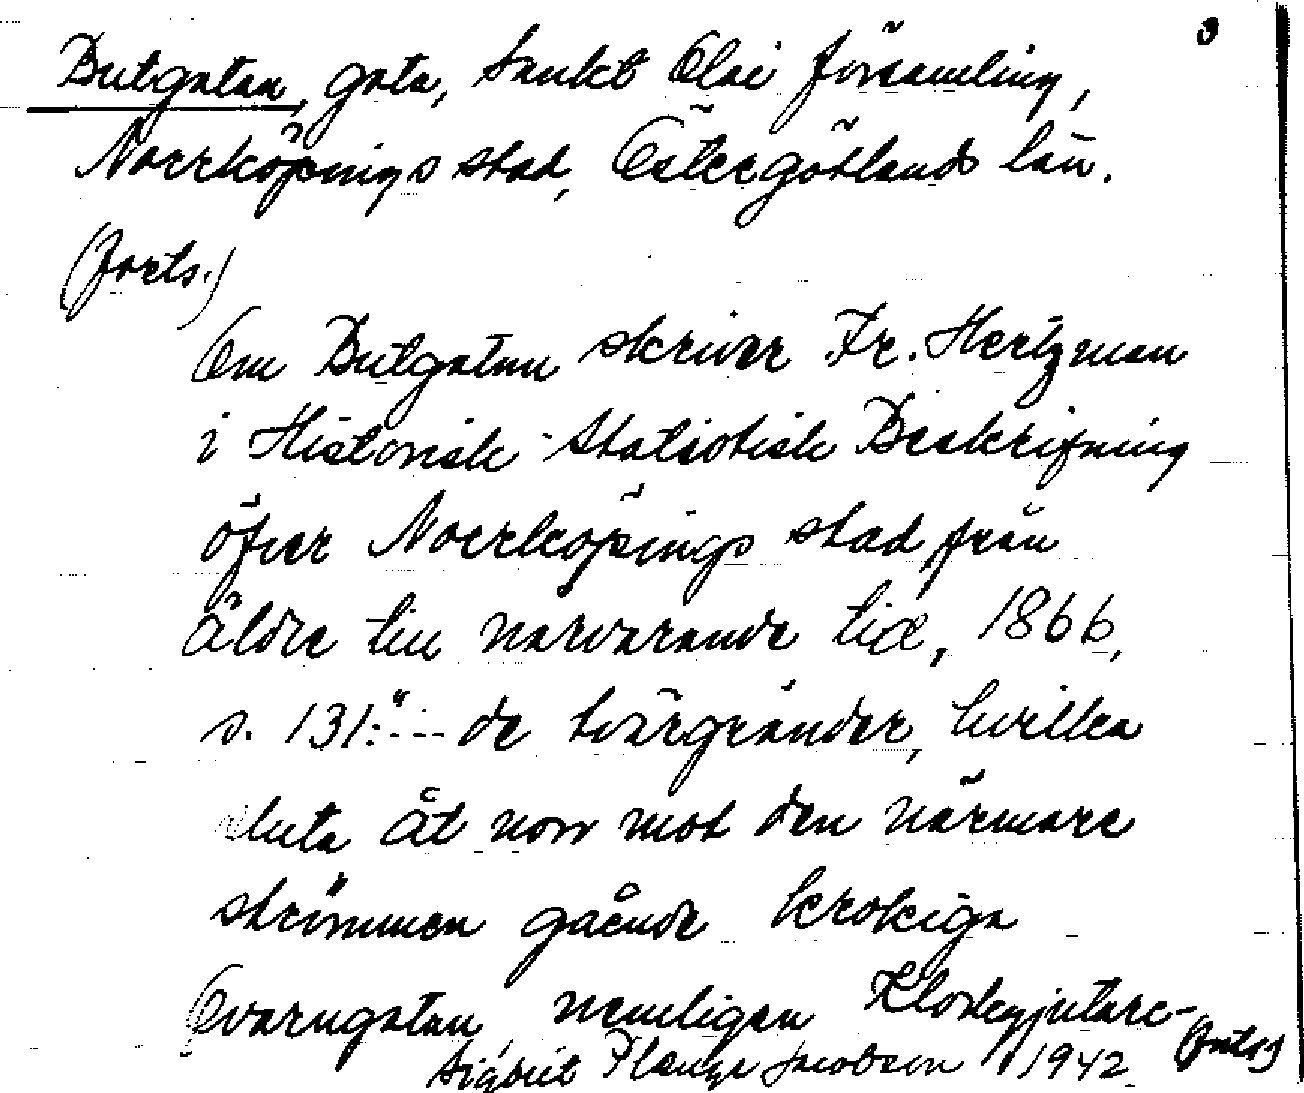 3
Butgatan, gata, Sankt Olai församling,
Norrköpings stad, Östergötlands län.
(forts.)
Om Butgatan skriver Fr. Hertzman
i Historisk-Statistisk Beskrifning
öfver Norrköpings stad från
äldre till närvarande tid, 1866,
s. 131: "--- de tvärgränder, hvilka
sluta åt norr mot den närmare
strömmen gående krokiga
Qvarngatan, nemligen Klockgjutare-
(forts.)
Sigbrit Plænge Jacobson 1942